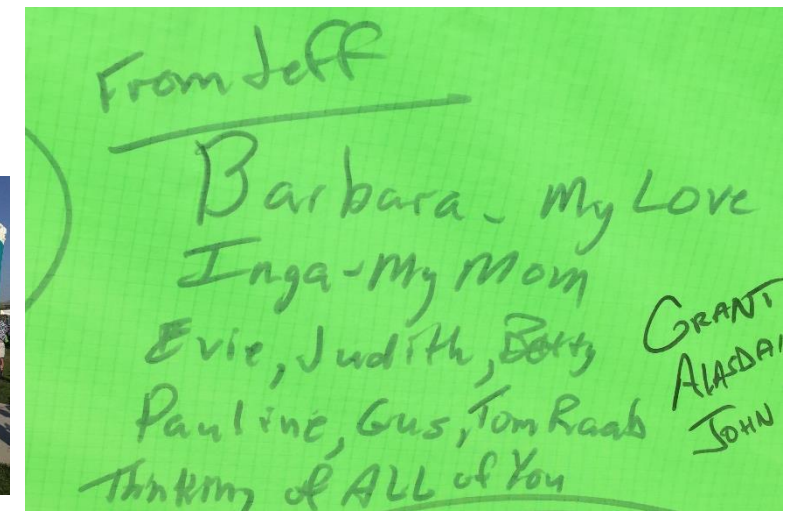 From Jeff
Barbara - My Love
Inga - My Mom
Evie, Judith, Betty
Pauline, Gus, Tom Raab
Thinking of ALL of You
GRANT
ALASDAI
JOHN